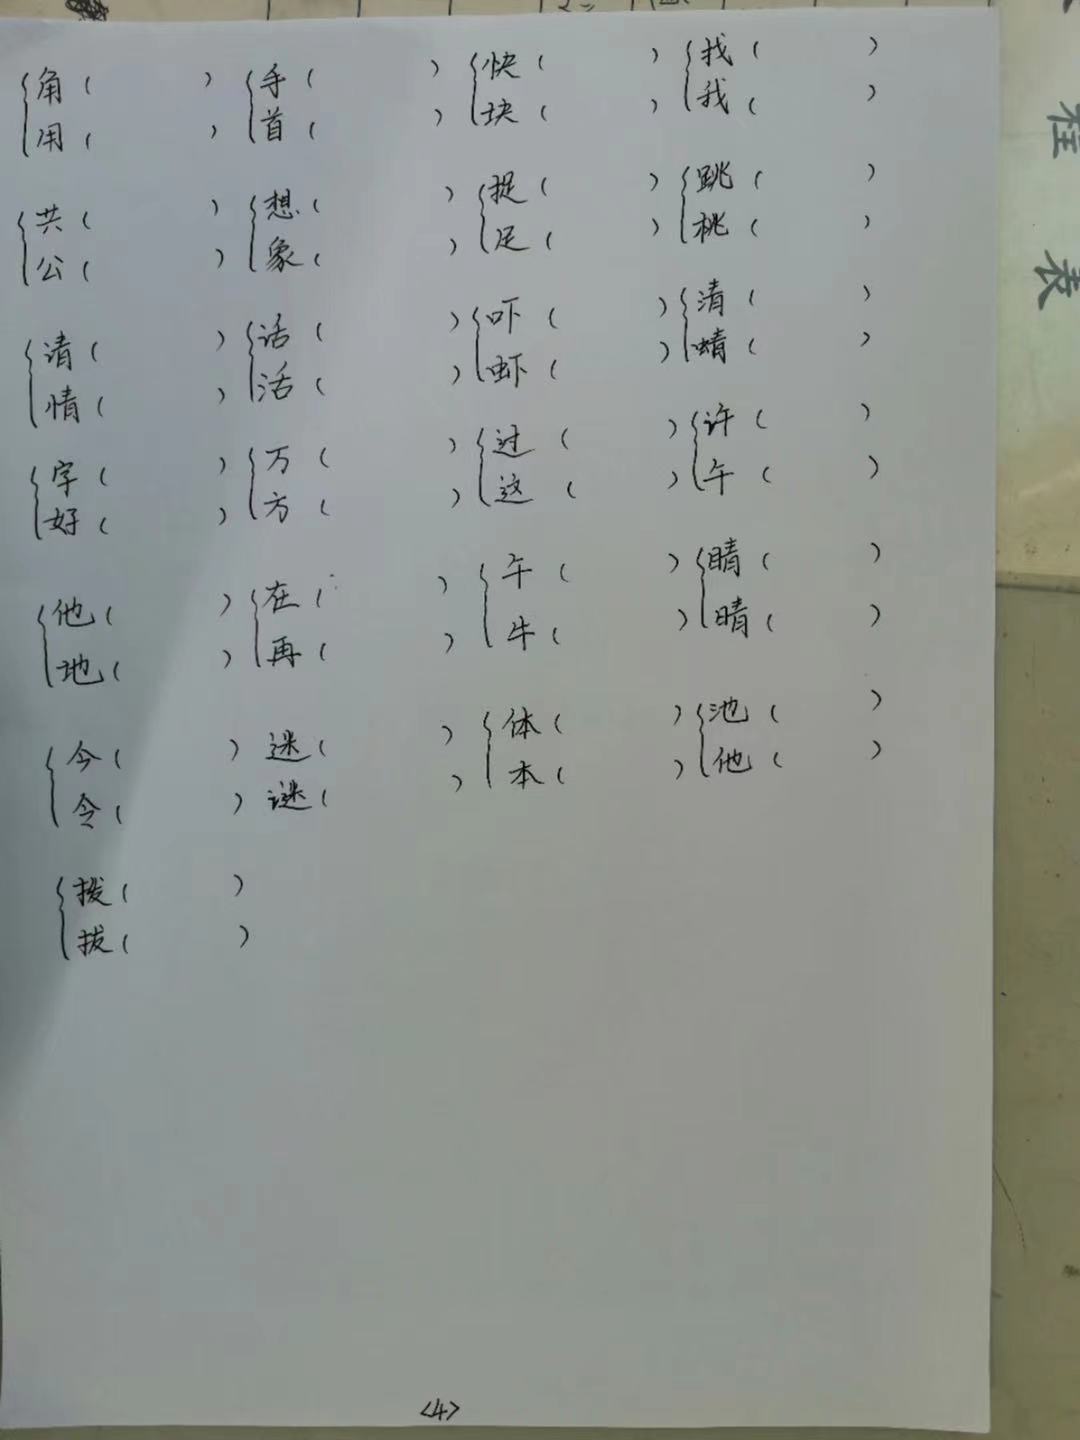 角（ ） 手（ ） 快（ ） 找（ ）
用（ ） 首（ ） 块（ ） 我（ ）
共（ ） 想（ ） 捉（ ） 跳（ ）
公（ ） 象（ ） 足（ ） 桃（ ）
请（ ） 话（ ） 吓（ ） 清（ ）
情（ ） 活（ ） 虾（ ） 蜻（ ）
字（ ） 万（ ） 过（ ） 许（ ）
好（ ） 方（ ） 这（ ） 午（ ）
他（ ） 在（ ） 午（ ） 睛（ ）
地（ ） 再（ ） 牛（ ） 晴（ ）
今（ ） 迷（ ） 体（ ） 池（ ）
令（ ） 谜（ ） 本（ ） 他（ ）
拨（ ）
拔（ ）
<4>
程
表